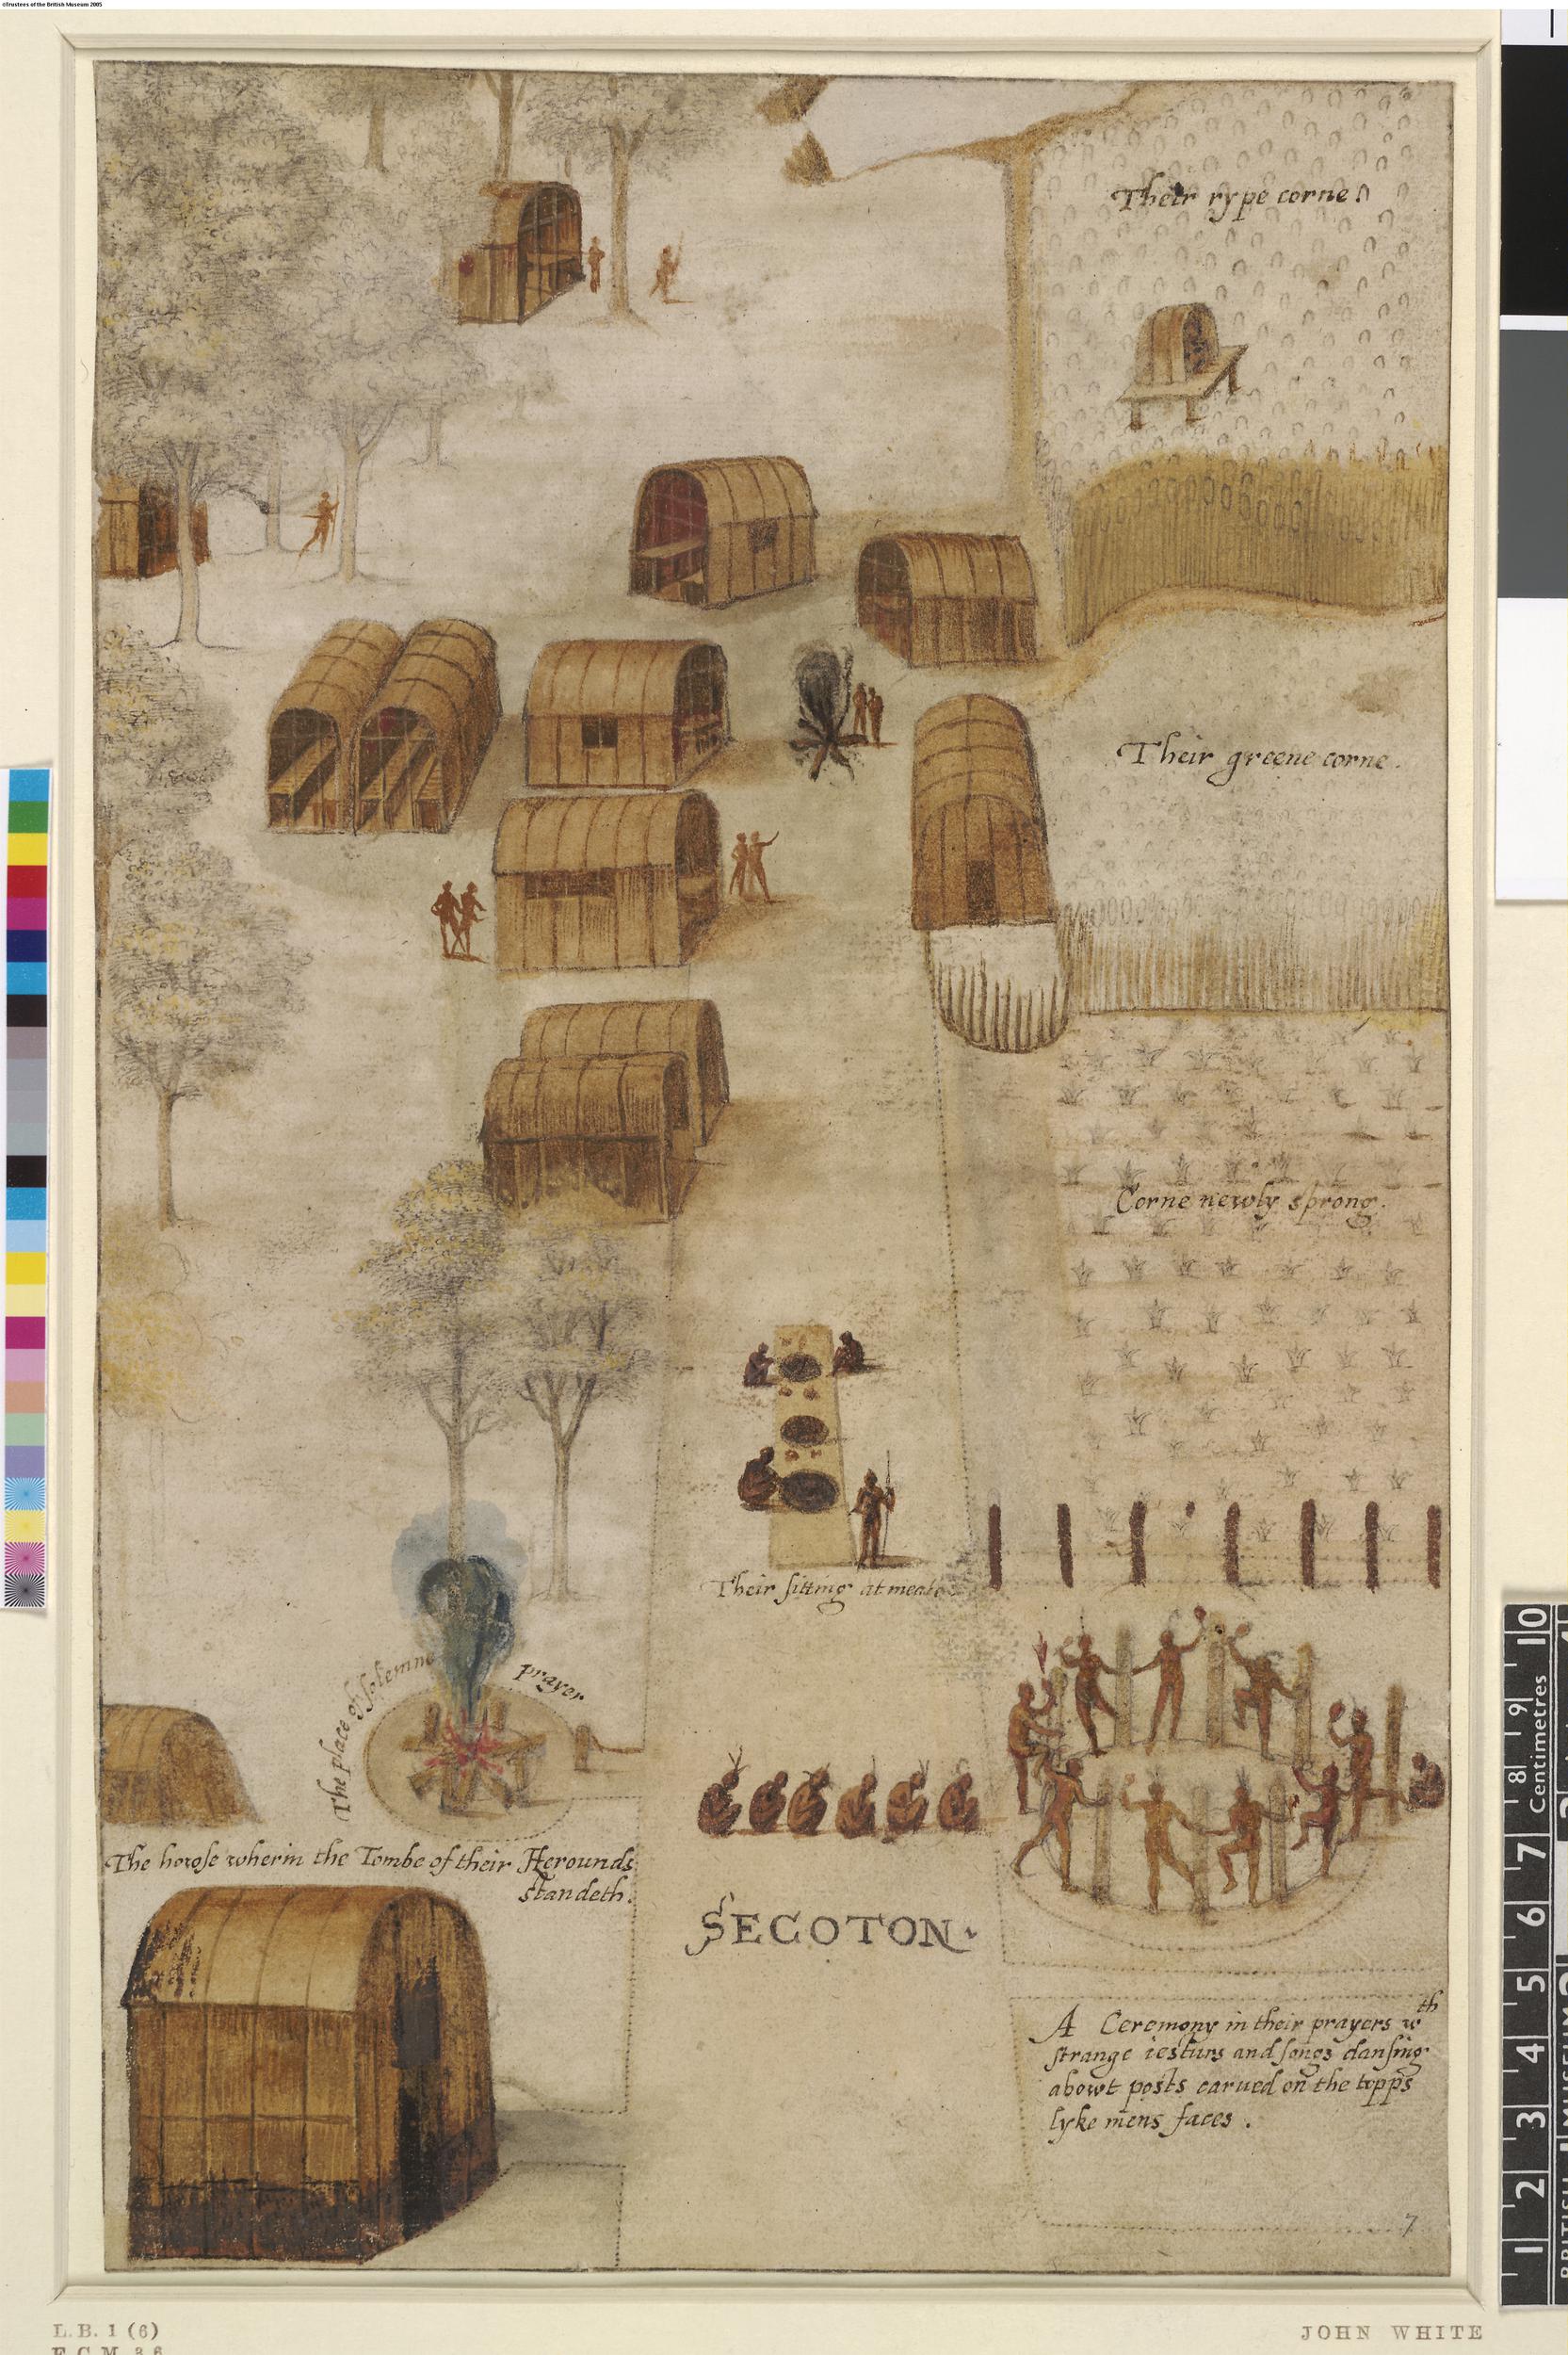 ©Trustees of the British Museum 2005
Their rype corne.
Their greene corne.
Corne newly sprong.
Their sitting at meate.
The place of solemne prayer
The howse wherin the Tombe of their Herounds
standeth.
SECOTON.
A Ceremony in their prayers wth
strange iesturs and songs dansing
abowt posts carued on the topps
lyke mens faces.
7
10
9
8
7
6
5
4
3
2
1
Centimetres
BRITISH MUSEUM
L.B. 1 (6)
JOHN WHITE